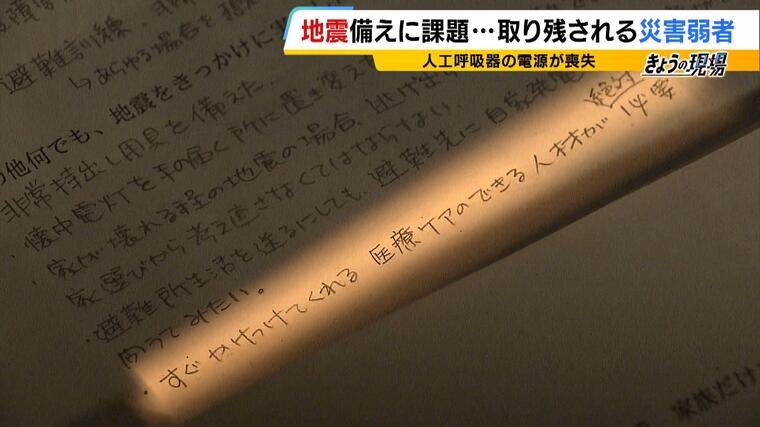 地震備えに課題…取り残される災害弱者
人工呼吸器の電源が喪失
きょうの現場
避難訓練
あらゆる場合を想
の他何でも、地震をきっかけに
非常持出し用具を備えた
・懐中電灯を手の届く所に置き変えた
・家が壊れる程の地震の場合、逃げ
家選びから考え直さなくてはならない。
・避難所生活を送るにしても、避難先に自家発電
問うてみたい。
・すぐかけつけてくれる医療ケアのできる人材が絶対必要
家族だけ